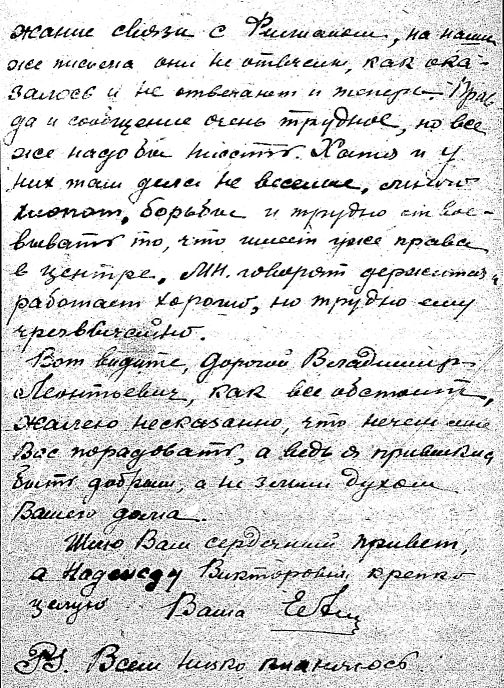 жание связи с Рижанами, на наши
же письма они не ответили, как ока-
залось и не отвечают и теперь. Прав-
да и сообщение очень трудное, но все
же надо бы писать. Хотя и у
них там дела не веселые, много
хлопот, борьбы и трудно отвое-
вывать то, что имеет уже права
в центре. МН. говорят держится,
работает хорошо, но трудно ему
чрезвычайно.
Вот видите, дорогой Владимир
Леонтьевич, как все обстоит,
жалею несказанно, что нечем мне
Вас порадовать, а ведь я привыкла
быть добрым, а не злым духом
Вашего дома.
Шлю Вам сердечный привет,
а Надежду Викторовну крепко
целую Ваша
PS. Всем низко кланяюсь